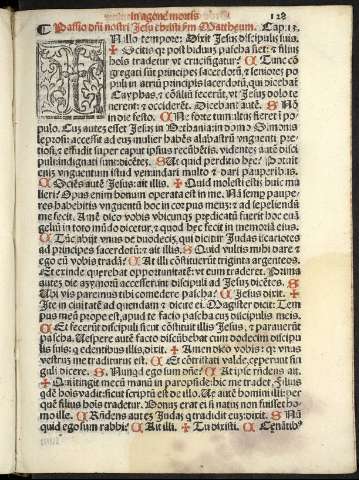 in agone mortis 128
Passio dñi nostri Jesu christi ẜm Mattheum. Cap: 13.
N illo tempore: Dixit Jesus discipulis suis.
✠ Scitis qz post biduum pascha fiet: et filius
hoĩs tradetur vt crucifigatur? C Tunc cõ
gregati sũt principes sacerdotũ, et seniores po
puli in atriũ principis sacerdotũ, qui dicebat̃
Cayphas, et cõsiliũ fecerũt, vt Jesuz dolo te
nerent: et occiderẽt. Dicebant autẽ. S Nõ
in die festo. C Ne forte tumultus fieret ĩ po
pulo. Cuz autez esset Jesus in Bethania: in domo Simonis
leprosi: accessit ad euz mulier habẽs alabastrũ vnguenti pre
tiosi: et effudit super caput ipsius recũbẽtis, videntes autẽ disci
puli: indignati sunt: dicẽtes. S Ut quid perditio hec? Potuit
enim vnguentum istud venundari multo et dari pauperibus.
C Sciẽs autẽ Jesus: ait illis. ✠ Quid molesti estis huic mu
lieri? Opus enim bonum operata est in me. Nã semp paupe-
res habebitis vobiscum
me fecit. Amẽ dico vobis vbicunqz predicatũ fuerit hoc euã
geliũ in toto mũdo dicetur, et quod hec fecit in memoriã eius.
C Tũc abijt vnus de duodecĩ, qui dicitur Judas scariotes
ad principes sacerdotũ: et ait illis. S Quid vultis mihi dare et
ego eũ vobis tradã? C At illi cõstituerũt triginta argenteos.
Et exinde querebat opportunitatẽ: vt eum traderet. Prima
autez die azymorũ accesserunt discipuli ad Jesuz dicẽtes. S
Ubi vis paremus tibi comedere pascha? C Jesus dixit. ✠
Ite in ciuitatẽ ad quendam et dicite ei. Magister dicit: Tem
pus meũ prope est, apud te facio pascha cuz discipulis meis.
C Et fecerũt discipuli sicut cõstituit illis Jesus, et parauerũt
pascha. Uespere autẽ facto discũbebat cum duodecim discipu
lis suis: et edentibus illis, dixit. ✠ Amen dico vobis: qz vnus
vestrum me traditurus est. C Et cõtristati valde, ceperunt sin
guli dicere. S Nunqd ego sum dñe? C At ipse rñdens ait.
✠ Qui intingit mecũ manũ in paropside: hic me tradet. Filius
qdẽ hoĩs vadit: sicut scriptũ est de illo. Ue autẽ homini illi: per
quẽ filius hoĩs tradetur. Bonuz erat ei si natus non fuisset ho
mo ille. C Rñdens autez Judas q tradidit euz: dixit. S Nũ
quid ego sum rabbi? C Ait illi. ✠ Tu dixisti. C Cenãtibꝰ